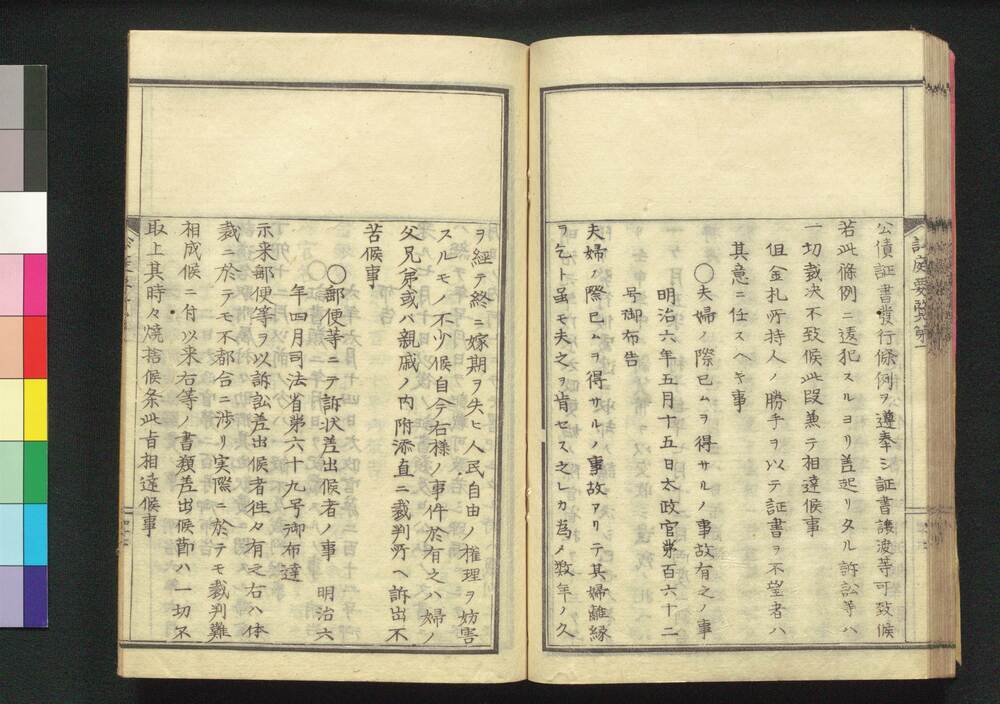 公債証書發行條例ヲ遵奉シ証書讓渡等可致候
若此條例ニ違犯スルヨリ差起リタル訴訟等ハ
一切裁決不致候此段兼テ相達候事
但金札所持人ノ勝手ヲ以テ証書ヲ不望者ハ
其意ニ任スヘキ事
〇夫婦ノ際已ムヲ得サルノ事故有之ノ事
明治六年五月十五日太政官第百六十二
号御布告
夫婦ノ際已ムヲ得サルノ事故アリテ其婦離縁
ヲ乞ト虽モ夫之ヲ肯セス之レカ為メ数年ノ久
ヲ經テ終ニ嫁期ヲ失ヒ人民自由ノ權理ヲ妨害
スルモノ不少候自今右様ノ事件於有之ハ婦ノ
父兄弟或ハ親戚ノ内附添直ニ裁判所ヘ訴出不
苦候事
〇郵便等ニテ訴状差出候者ノ事 明治六
年四月司法省第六十九号御布達
示来郵便等ヲ以訴訟差出候者往々有之右ハ体
裁ニ於テモ不都合ニ渉リ実際ニ於テモ裁判難
相成候ニ付以来右等ノ書類差出候節ハ一切不
取上其時々燒捨候条此旨相達候事